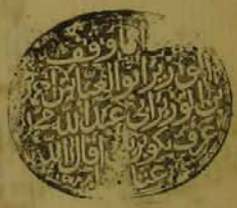 ما وقف
الوزير ابو العباس احمد
بن الوزير ابي عبد الله محمد
عرف بكوپريلي اقال الله
عثارهما